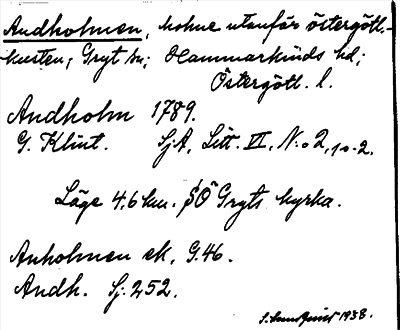 Andholmen, holme utanför östergötl.-
kusten, Gryt sn; Hammarkinds hd;
Östergötl. l.
Andholm 1789.
G. Klint. SjA, Litt. VI, N:o 2, 10.2.
Läge 4,6 km. SÖ Gryts kyrka.
Anholmen ek. G.46.
Andh. Sj: 252.
1938.